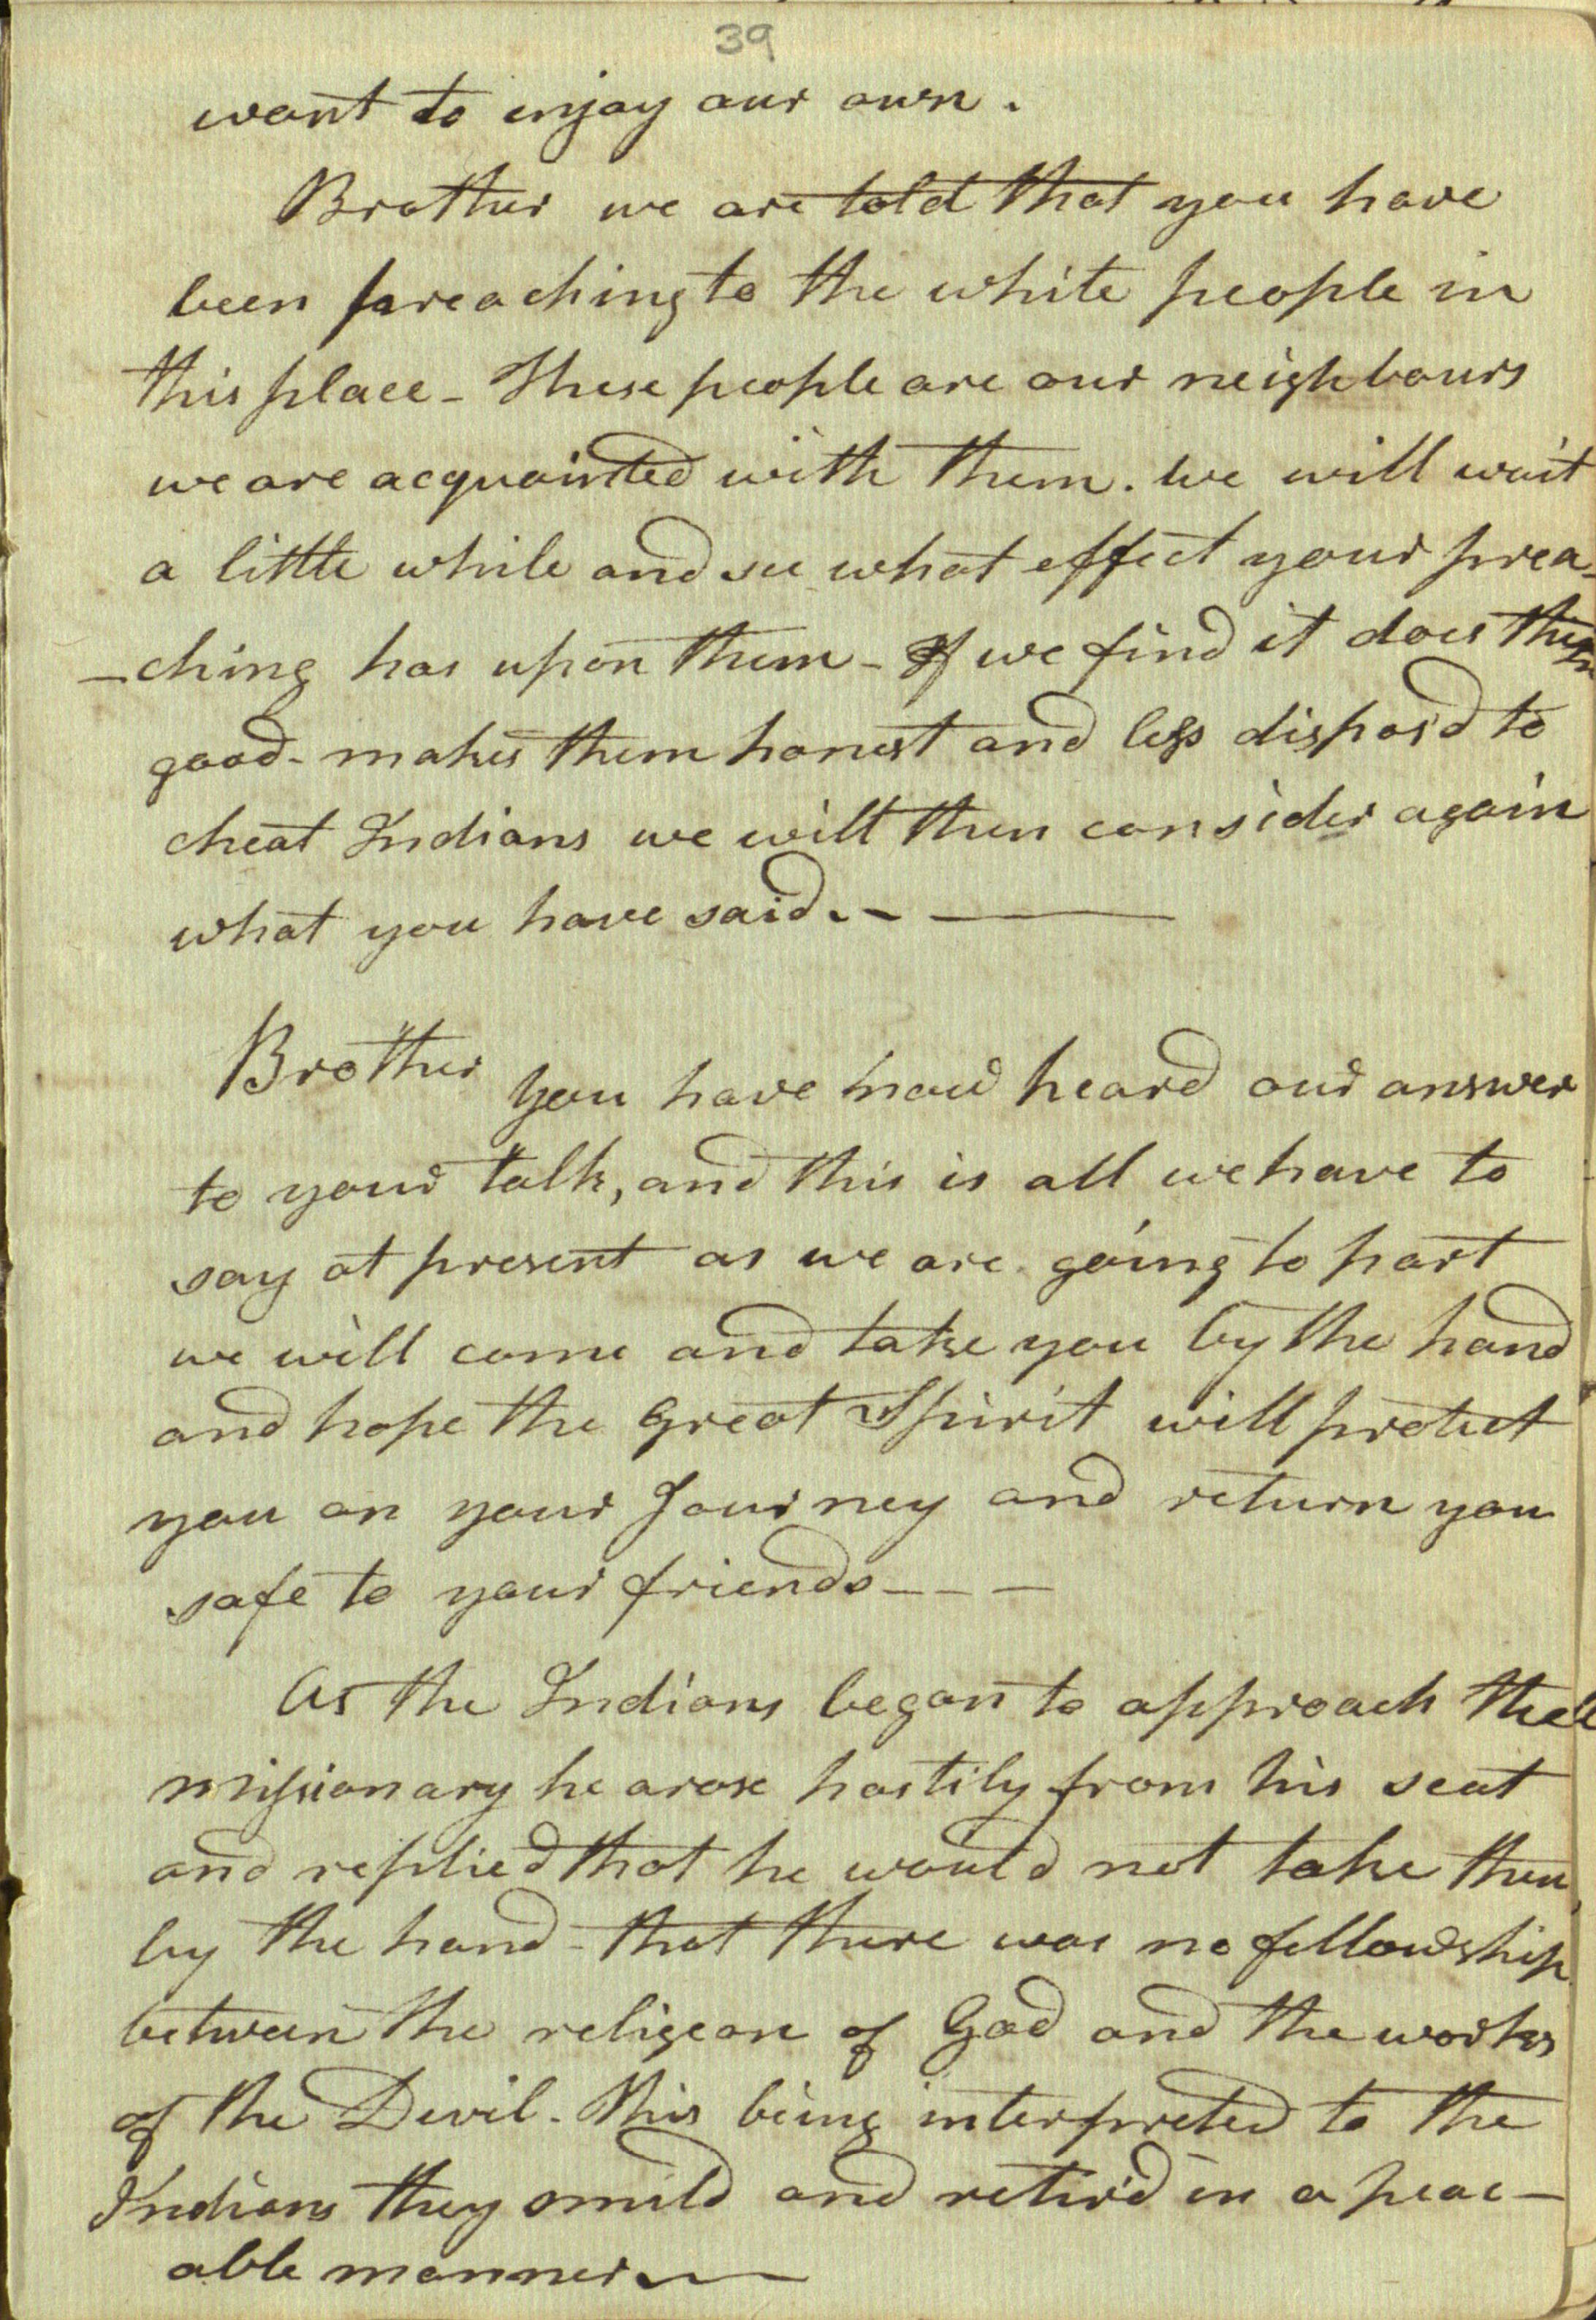 39
want to enjoy our own.
Brother we are told that you have
been preaching to the white people in
this place - These people are our neighbours
we are acquainted with them. we will wait
a little while and see what effect your prea-
-ching has upon them - If we find it does them
good - makes them honest and less dispos'd to
cheat Indians we will then consider again
what you have said. -
Brother you have now heard our answer
to your talk, and this is all we have to
say at present as we are going to part
we will come and take you by the hand
and hope the great Spirit will protect
you on your Journey and return you
safe to your friends - - -
As the Indians began to approach the
missionary he arose hastily from his seat
and replied that he would not take them
by the hand - that there was no fellowship
between the religeon of God and the works
of the Devil - this being interpreted to the
Indians they smild and retir'd in a peac-
able manner -